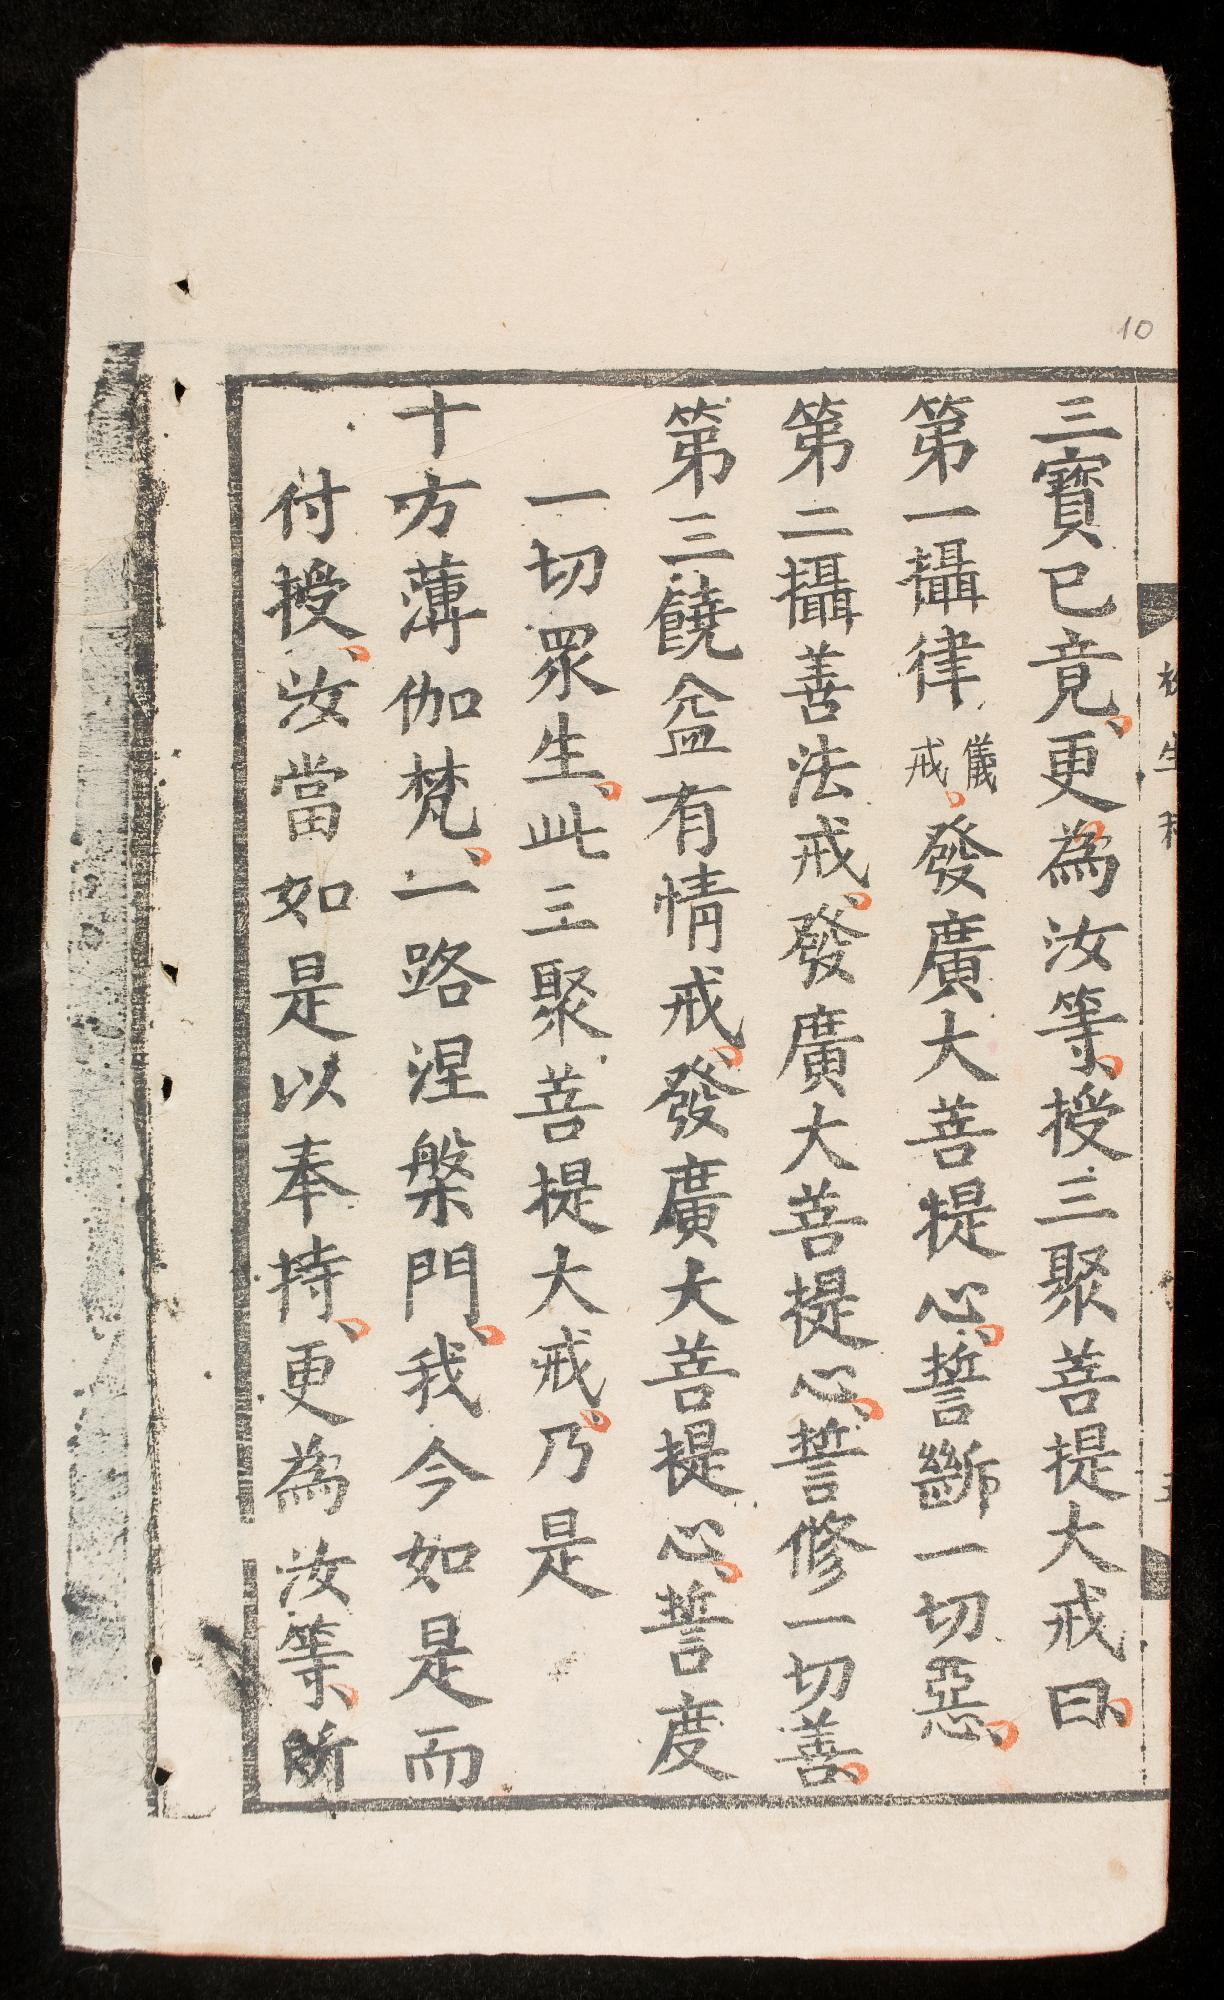 10
三寶已竟、更為汝等、授三聚菩提大戒曰、
第一攝律儀戒。發廣大菩提心、誓斷一切惡、
第二攝善法戒、發廣大菩提心、誓修一切善、
第三饒益有情戒、發廣大菩提心、誓度
一切眾生、此三聚菩提大戒、乃是
十方薄伽梵、一路涅槃門、我今如是而
付授、汝當如是以奉持、更為汝等、所